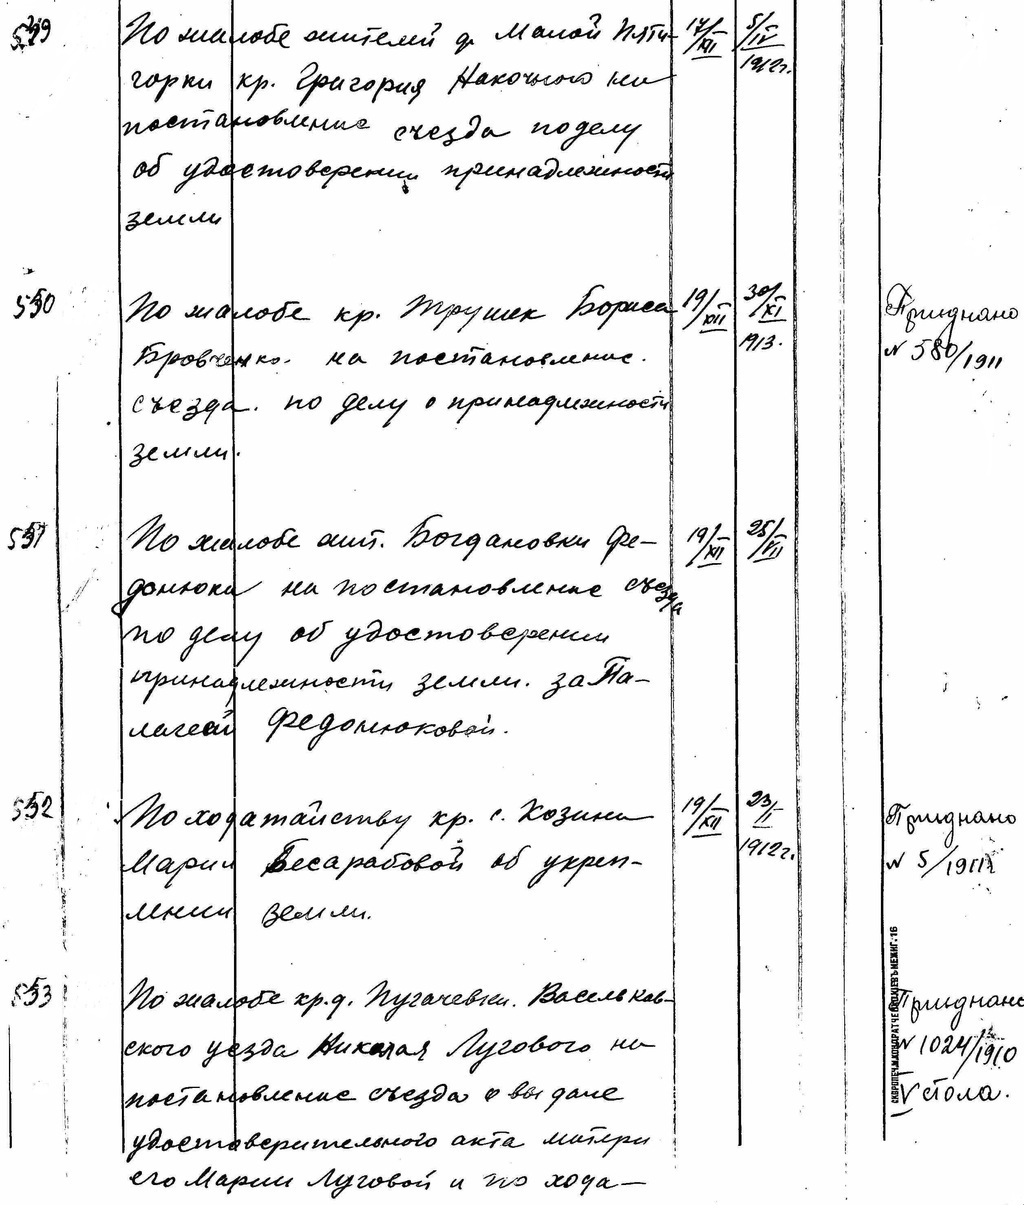 549
По жалобе жителей д. Малой Пяти-
горки кр. Григория Накочного на
постановление съезда по делу
об удостоверении принадлежности
земли
17/XII
5/IV
1912г.
550
По жалобе кр. Трушек Бориса
Бровченко. на постановление.
съезда. по делу о принадлежности
земли.
19/XII
30/XI
1913.
Приєднано
N 580/1911
551
По жалобе жит. Богдановки Фе-
донюка на постановление съезда
по делу об удостоверении
принадлежности земли. за Па-
лагеей Федонюковой.
19/XII
25/VII
552
По ходатайству кр. с. Козина
Марии Бесарабовой об укреп-
лении земли.
19/XII
23/I
1912г.
Приєднано
N 5/1911
553
По жалобе кр. д. Пугачевки. Васильков-
ского уезда Николая Лугового на
постановление съезда о выдаче
удостоверительного акта матери
его Марии Луговой и по хода-
Приєднано
N 1024/1910
V стола.